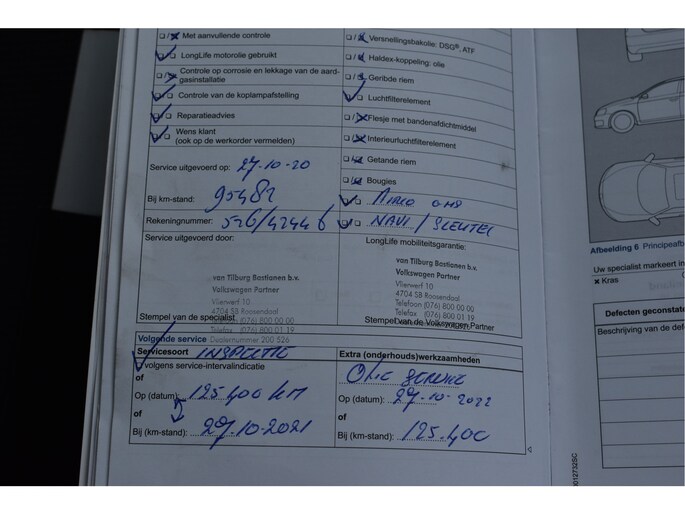 Met aanvullende controle
LongLife motorolie gebruikt
Controle op corrosie en lekkage van de aard-
gasinstallatie
Controle van de koplampafstelling
Reparatieadvies
Wens klant
(ook op de werkorder vermelden)
Service uitgevoerd op: 27-10-20
Bij km-stand: 95482
Rekeningnummer: 526/42446
Service uitgevoerd door:
van Tilburg Bastianen b.v.
Volkswagen Partner
Vlierwerf 10
4704 SB Roosendaal
Telefoon (076) 800 00 00
Telefax (076) 800 01 19
Stempel van de specialist
Dealernummer 200 526
Versnellingsbakolie: DSG®, ATF
Haldex-koppeling: olie
Geribde riem
Luchtfilterelement
Flesje met bandenafdichtmiddel
Interieurluchtfilterelement
Getande riem
Bougies
AIRCO
NAVI / SLEUTEL
LongLife mobiliteitsgarantie:
van Tilburg Bastianen b.v.
Volkswagen Partner
Vlierwerf 10
4704 SB Roosendaal
Telefoon (076) 800 00 00
Telefax (076) 800 01 19
Stempel van de Volkswagen Partner
Volgende service
Servicesoort INSPECTIE
volgens service-intervalindicatie
of
Op (datum): 125.400 KM
of
Bij (km-stand): 27.10.2021
Extra (onderhouds)werkzaamheden
OLIE SERVICE
Op (datum): 27-10-2022
of
Bij (km-stand): 125.400
Afbeelding 6 Principeafb
Uw specialist markeert in
Kras
Defecten geconstate
Beschrijving van de defe